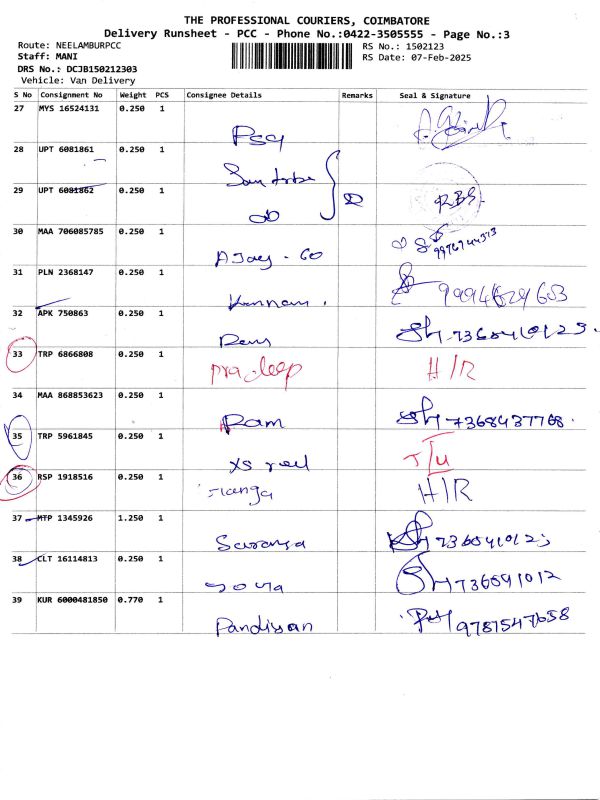 THE PROFESSIONAL COURIERS, COIMBATORE
Delivery Runsheet - PCC - Phone No.:0422-3505555 - Page No.:3
Route: NEELAMBURPCC RS No.: 1502123
Staff: MANI RS Date: 07-Feb-2025
DRS No.: DCJB150212303
Vehicle: Van Delivery
S No Consignment No Weight PCS Consignee Details Remarks Seal & Signature
27 MYS 16524131 0.250 1
28 UPT 6081861 0.250 1
29 UPT 6081862 0.250 1
RBS.
30 MAA 706085785 0.250 1
AJay - Go
31 PLN 2368147 0.250 1
Kannan.
32 APK 750863 0.250 1
33 TRP 6866808 0.250 1
pradeep H/R
34 MAA 868853623 0.250 1
Ram 7368437768.
35 TRP 5961845 0.250 1
36 RSP 1918516 0.250 1
H/R
37 MTP 1345926 1.250 1
38 CLT 16114813 0.250 1
736091012
39 KUR 6000481850 0.770 1
Pandiyan 9787547658